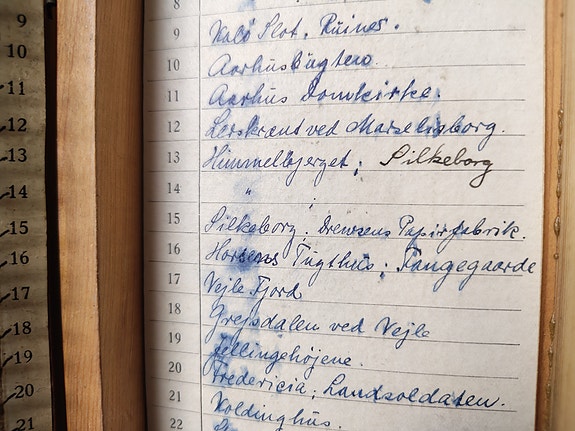 9
10
11
12
13
14
15
16
17
18
19
20
21
8
9 Kalö Slot. Ruiner.
10 Aarhusbugten.
11 Aarhus Domkirke.
12 ved Marselisborg.
13 Himmelbjerget; Silkeborg
14 " ;
15 Silkeborg. Drewsens Papirfabrik.
16 Horsens Tugthus; Fangegaarde
17 Vejle Fjord
18 Grejsdalen ved Vejle
19 Jellingehöjene.
20 Fredericia; Landsoldaten.
21 Koldinghus.
22